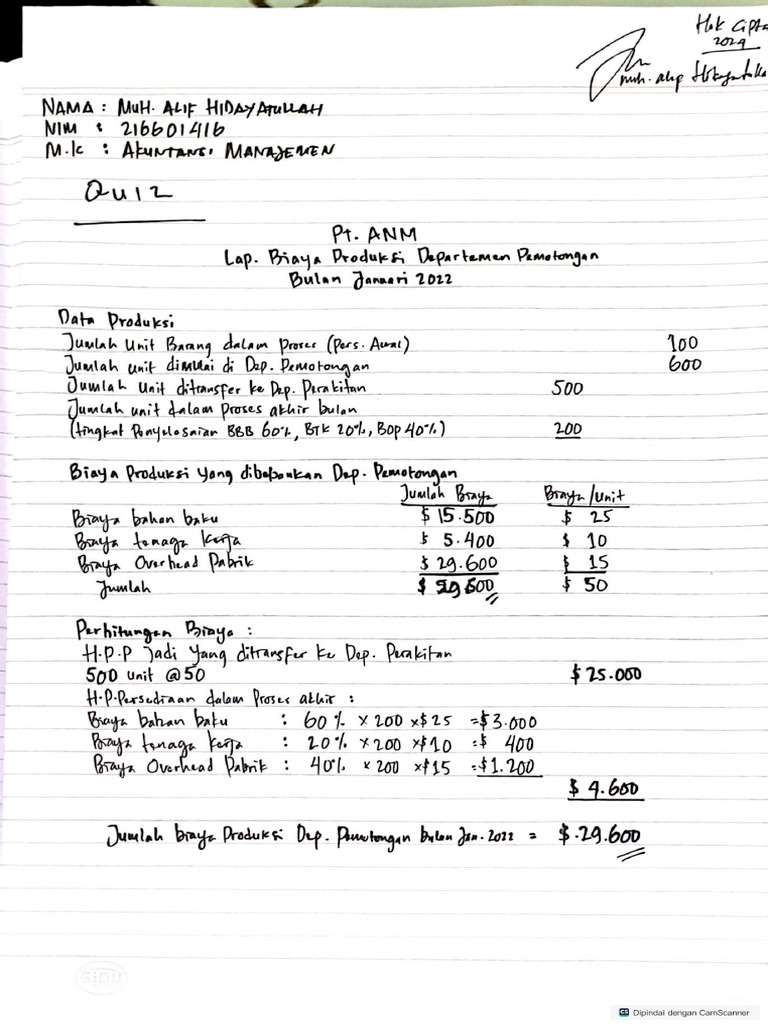 Hak Cipta
2024
Muh. Alip Hidayatulla
NAMA : MUH. ALIF HIDAYATULLAH
NIM : 216601416
M.K : AKUNTANSI MANAJEMEN
QUIZ
Pt. ANM
Lap. Biaya Produksi Departemen Pemotongan
Bulan Januari 2022
Data Produksi
Jumlah Unit Barang dalam proses (Pers. Awal) 100
Jumlah unit dimulai di Dep. Pemotongan 600
Jumlah Unit ditransfer ke Dep. Perakitan 500
Jumlah unit dalam proses akhir bulan
(tingkat Penyelesaian BBB 60%, BTK 20%, BOP 40%) 200
Biaya Produksi yang dibebankan Dep. Pemotongan
Jumlah Biaya Biaya/Unit
Biaya bahan baku $ 15.500 $ 25
Biaya tenaga kerja $ 5.400 $ 10
Biaya Overhead Pabrik $ 29.600 $ 15
Jumlah $ 29.600 $ 50
Perhitungan Biaya :
H.P.P Jadi yang ditransfer ke Dep. Perakitan
500 unit @50 $ 25.000
H.P.Persediaan dalam Proses akhir :
Biaya bahan baku : 60% × 200 × $ 25 = $ 3.000
Biaya tenaga kerja : 20% × 200 × $ 10 = $ 400
Biaya Overhead Pabrik : 40% × 200 × $ 15 = $ 1.200
$ 4.600
Jumlah biaya Produksi Dep. Pemotongan bulan Jan. 2022 = $.29.600
SIDU
CS Dipindai dengan CamScanner